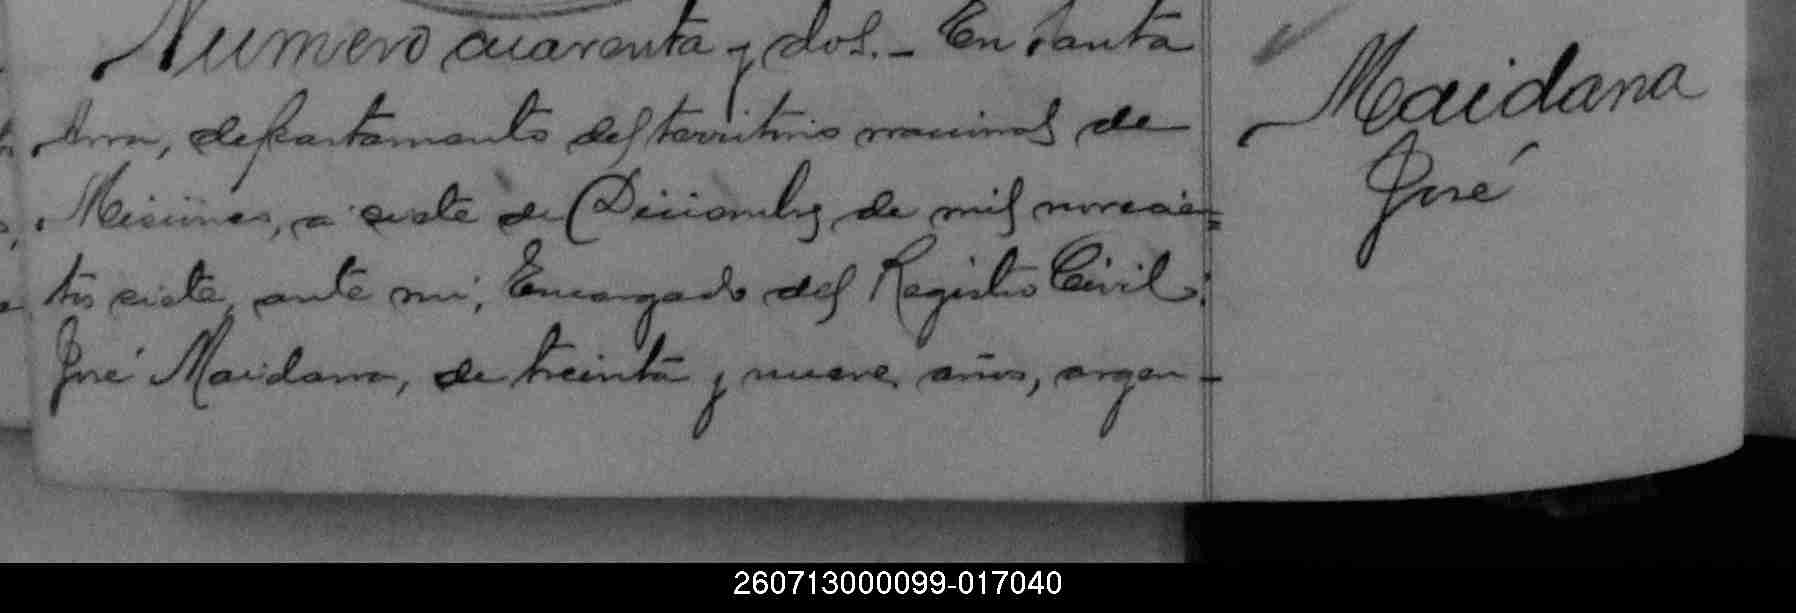 Numero cuarenta y dos.- En Santa
Ana, departamento del territorio nacional de
Misiones, a siete de Diciembre de mil novecien=
tos siete, ante mi, Encargado del Registro Civil:
José Maidana, de treinta y nueve años, argen-
Maidana
José
260713000099-017040